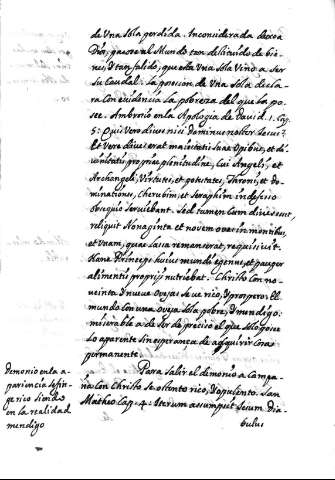 de Una sola perdida. Inconsiderada dexo a
Dios, que cree al Mundo tan destituido de bie-
nes, y tan falido, que esta Una sola Vino a ser
su Caudal: La posesion de Una sola decla-
ra con evidencia la pobreza del que la po-
see. Ambrosio en la Apologia de David. 1. Cap.
5: Qui Vero dives nisi dominus noster Jesus?
Et Vere dives erat maiestatis suæ opibus, et di-
vinitatis propriæ plenitudine, Cui Angeli, et
Archangeli, Virtutes, et potestates, Throni, et do-
minationes, Cherubim, et Seraphim indefesso
obsequio Serviebant. Sed tamen Cum dives esset,
reliquit Nonaginta et novem oves in montibus,
et Unam, quæ lassa remanserat, requisivit.
Hanc Princeps huius mundi egenus, et pauper
alimentis proprijs nutriebat. Christo Con no-
venta y nueve ovejas se ve rico, y prospero: El
mundo con una oveja sola pobre, y mendigo:
miserable a de ser de preciso el que solo goce
lo aparente sin esperança de adquirir Cosa
permanente.
Para Salir el demonio a Campa-
ña Con Christo se ostento rico, y opulento. San
Matheo Cap. 4: Iterum assumpsit Eum dia-
bolus
Demonio en la a-
pariencia se fin-
ge rico siendo
en la realidad
mendigo